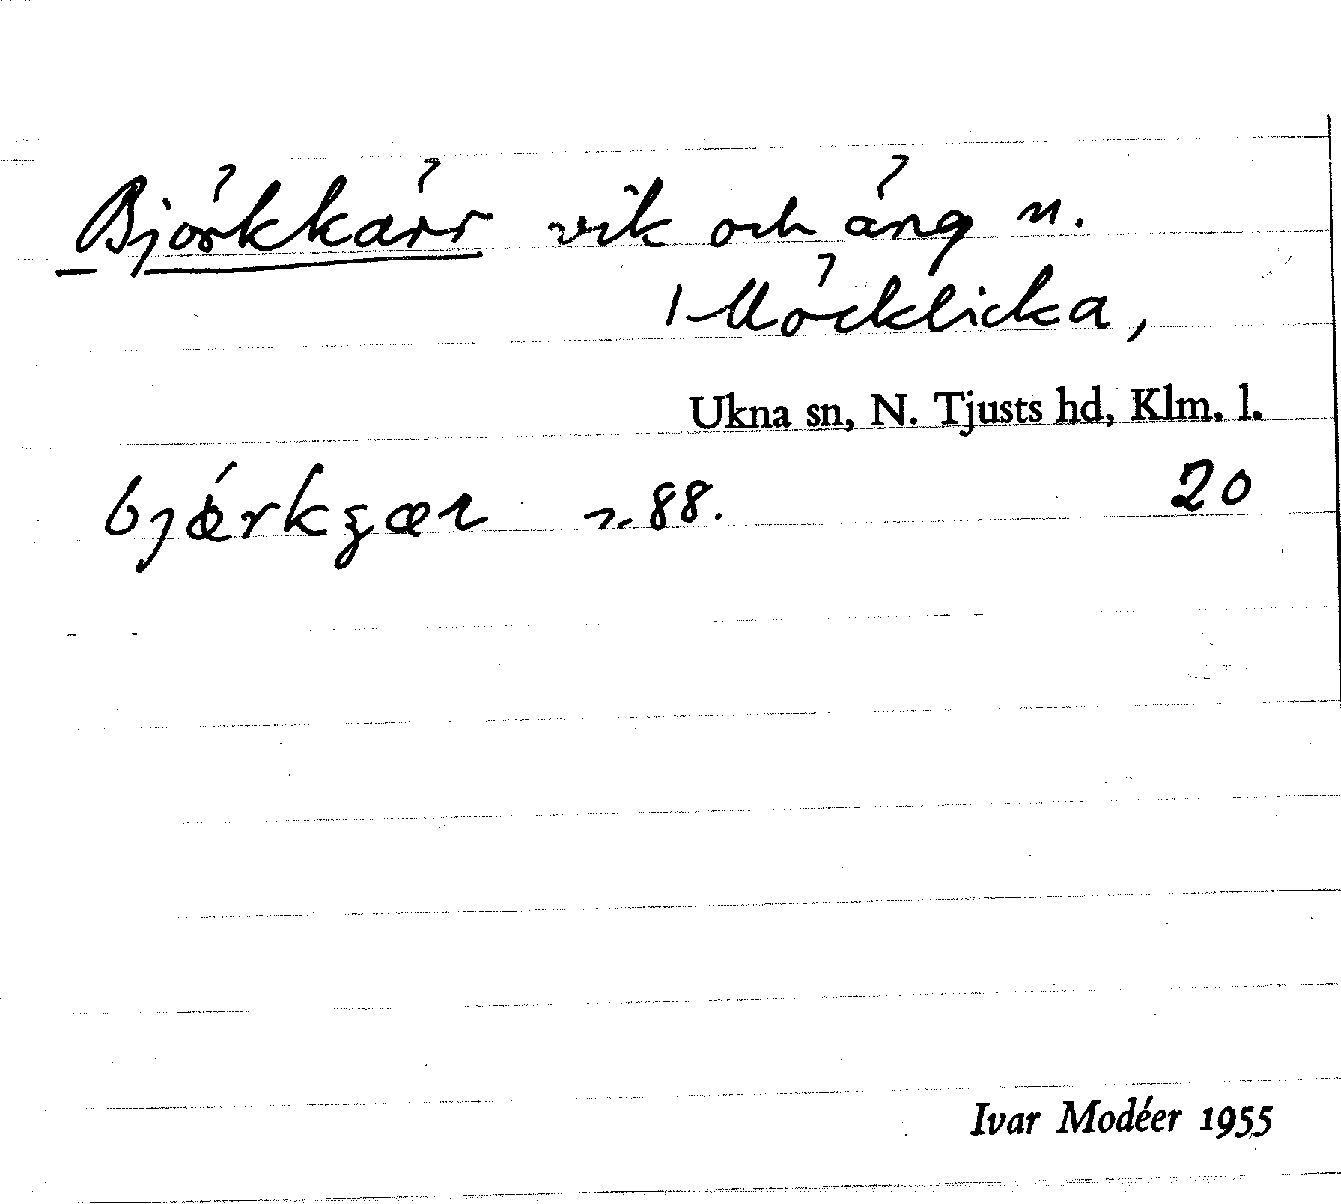 Björkkärr vik och äng n.
Möcklicka,
Ukna sn, N. Tjusts hd, Klm. l.
88. 20
Ivar Modéer 1955